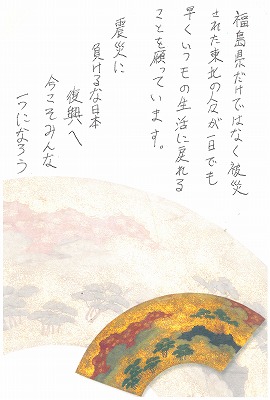 福島県だけではなく被災
された東北の人々が一日でも
早くいつもの生活に戻れる
ことを願っています。
震災に
負けるな日本
復興へ
今こそみんな
一つになろう